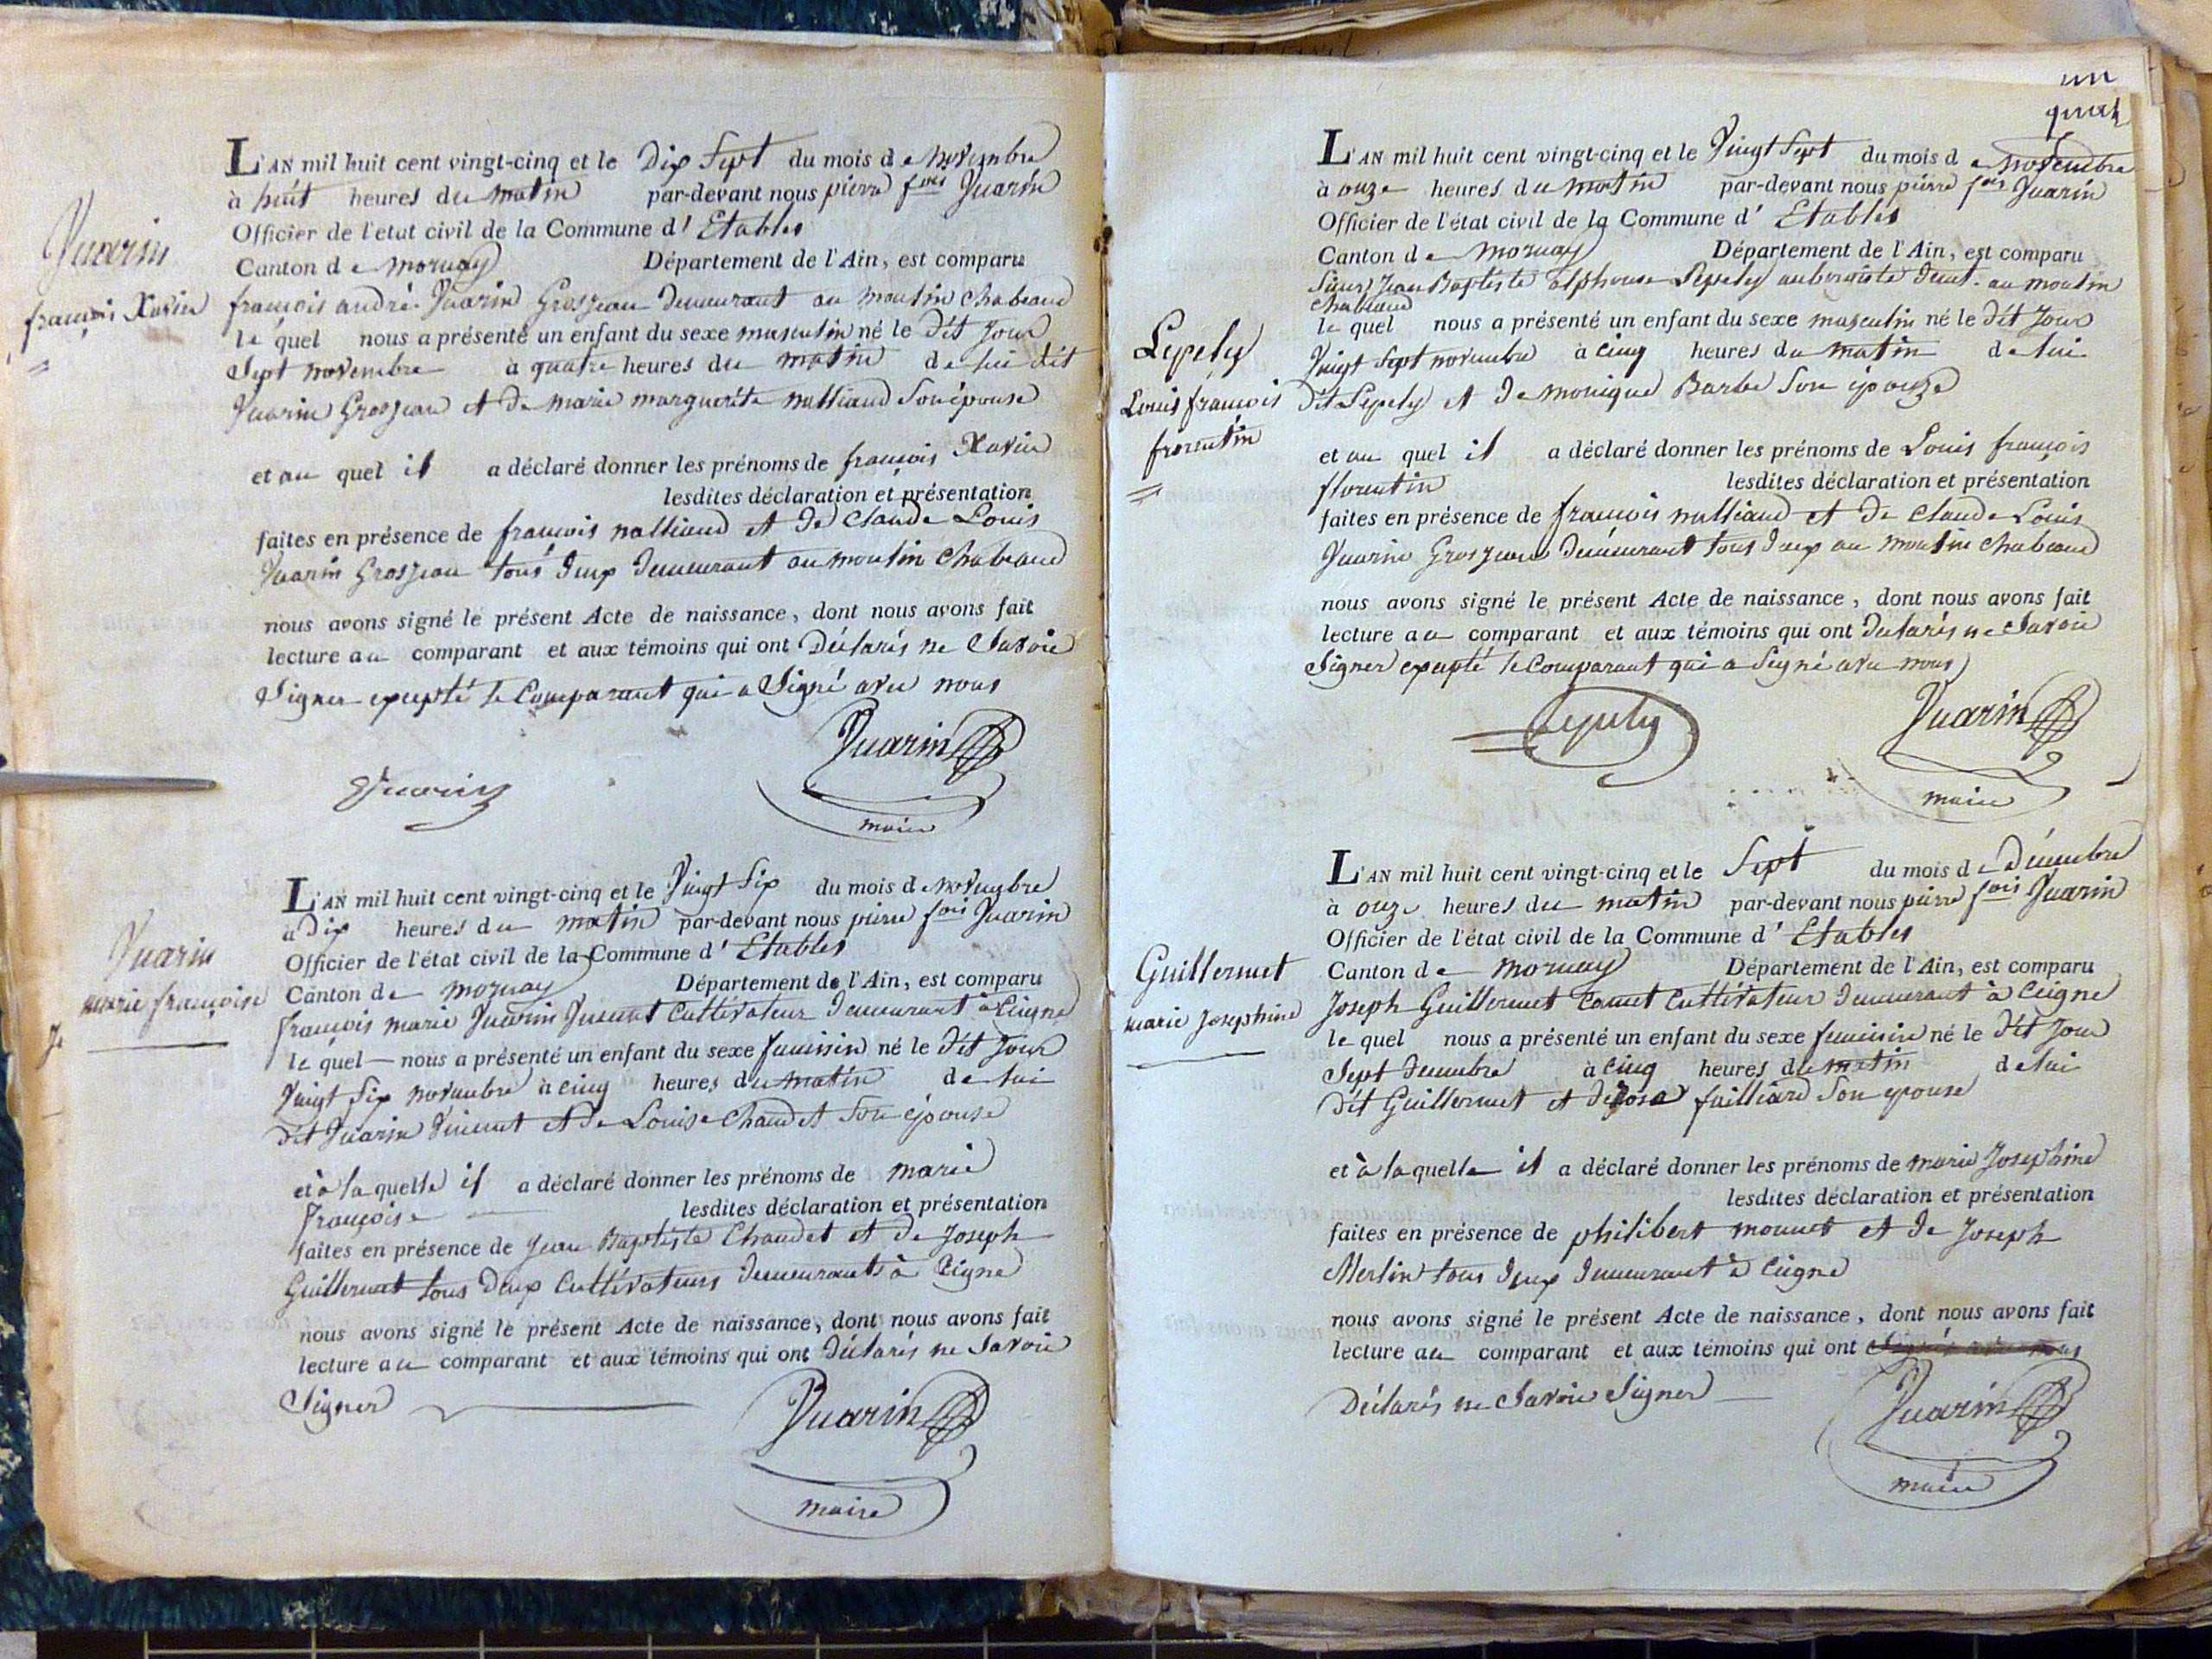 Vuarin
françois Xavier
L'AN mil huit cent vingt-cinq et le Dix Sept du mois de novembre
à huit heures du matin par-devant nous pierre fois Vuarin
Officier de l'etat civil de la Commune d' Etables
Canton de mornay Département de l'Ain, est comparu
françois andré Vuarin Grosjean demeurant au moulin chabeaud
le quel nous a présenté un enfant du sexe masculin né le dit Jour
Sept novembre à quatre heures du matin de lui dit
Vuarin Grosjean et de marie marguerite nalliaud Son épouse
et au quel il a déclaré donner les prénoms de françois Xavier
lesdites déclaration et présentation
faites en présence de françois nalliaud et de Claude Louis
Vuarin Grosjean tous deux demeurant au moulin Chabeaud
nous avons signé le présent Acte de naissance, dont nous avons fait
lecture au comparant et aux témoins qui ont Déclarés ne Savoir
Signer excepté le Comparant qui a Signé avec nous
Vuarin
Vuarin
maire
Vuarin
marie françoise
L'AN mil huit cent vingt-cinq et le Vingt Six du mois de novembre
à Dix heures du matin par-devant nous pierre fois Vuarin
Officier de l'état civil de la Commune d' Etables
Canton de mornay Département de l'Ain, est comparu
françois marie Vuarin Vincent Cultivateur demeurant à Ceigne
le quel nous a présenté un enfant du sexe feminin né le dit Jour
Vingt Six novembre à cinq heures du matin de lui
dit Vuarin Vincent et de Louise Chaudet Son épouse
et à la quelle il a déclaré donner les prénoms de marie
françoise lesdites déclaration et présentation
faites en présence de Jean Baptiste Chaudet et de Joseph
Guillermet tous deux Cultivateurs demeurants à Ceigne
nous avons signé le présent Acte de naissance, dont nous avons fait
lecture au comparant et aux témoins qui ont Déclarés ne Savoir
Signer
Vuarin
maire
un
Lepely
Louis françois
florentin
L'AN mil huit cent vingt-cinq et le Vingt Sept du mois de novembre
à onze heures du matin par-devant nous pierre fois Vuarin
Officier de l'état civil de la Commune d' Etables
Canton de mornay Département de l'Ain, est comparu
Sieur Jean Baptiste alphonse Lepely aubergiste demt. au moulin
chabeaud
le quel nous a présenté un enfant du sexe masculin né le dit Jour
Vingt Sept novembre à cinq heures du matin de lui
dit Lepely et de monique Barbe Son épouze
et au quel il a déclaré donner les prénoms de Louis françois
florentin lesdites déclaration et présentation
faites en présence de françois nalliaud et de Claude Louis
Vuarin Grosjean demeurant tous deux au moulin chabeaud
nous avons signé le présent Acte de naissance, dont nous avons fait
lecture au comparant et aux témoins qui ont declarés ne Savoir
Signer excepté le Comparant qui a Signé avec nous
Lepely
Vuarin
maire
Guillermet
marie Josephine
L'AN mil huit cent vingt-cinq et le Sept du mois de Décembre
à onze heures du matin par-devant nous pierre fois Vuarin
Officier de l'état civil de la Commune d' Etables
Canton de mornay Département de l'Ain, est comparu
Joseph Guillermet Comet Cultivateur demeurant à Ceigne
le quel nous a présenté un enfant du sexe feminin né le dit Jour
Sept decembre à cinq heures du matin de lui
dit Guillermet et de Rose failliard Son epouse
et à la quelle il a déclaré donner les prénoms de marie Josephine
lesdites déclaration et présentation
faites en présence de philibert monnet et de Joseph
Merlin tous deux demeurant à Ceigne
nous avons signé le présent Acte de naissance, dont nous avons fait
lecture au comparant et aux témoins qui ont
Déclarés ne Savoir Signer
Vuarin
maire